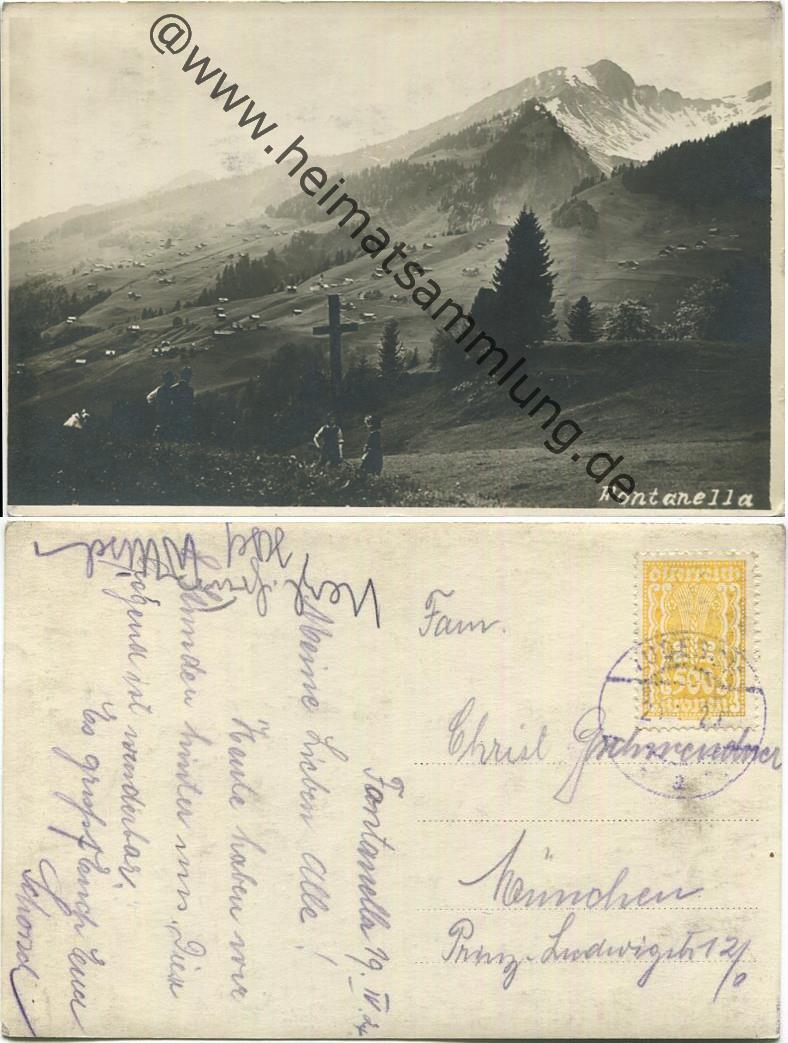 @www.heimatsammlung.de
Fontanella
Fontanella 19. IV. 24
Meine Lieben Alle!
Heute haben wir
Stunden hinter uns. Die
Gegend ist wunderbar.
Es grüßt Euch Euer
Herzl.
Josef
Fam.
Christ.
München
Prinz-Ludwigstr. 12/0
Österreich
500